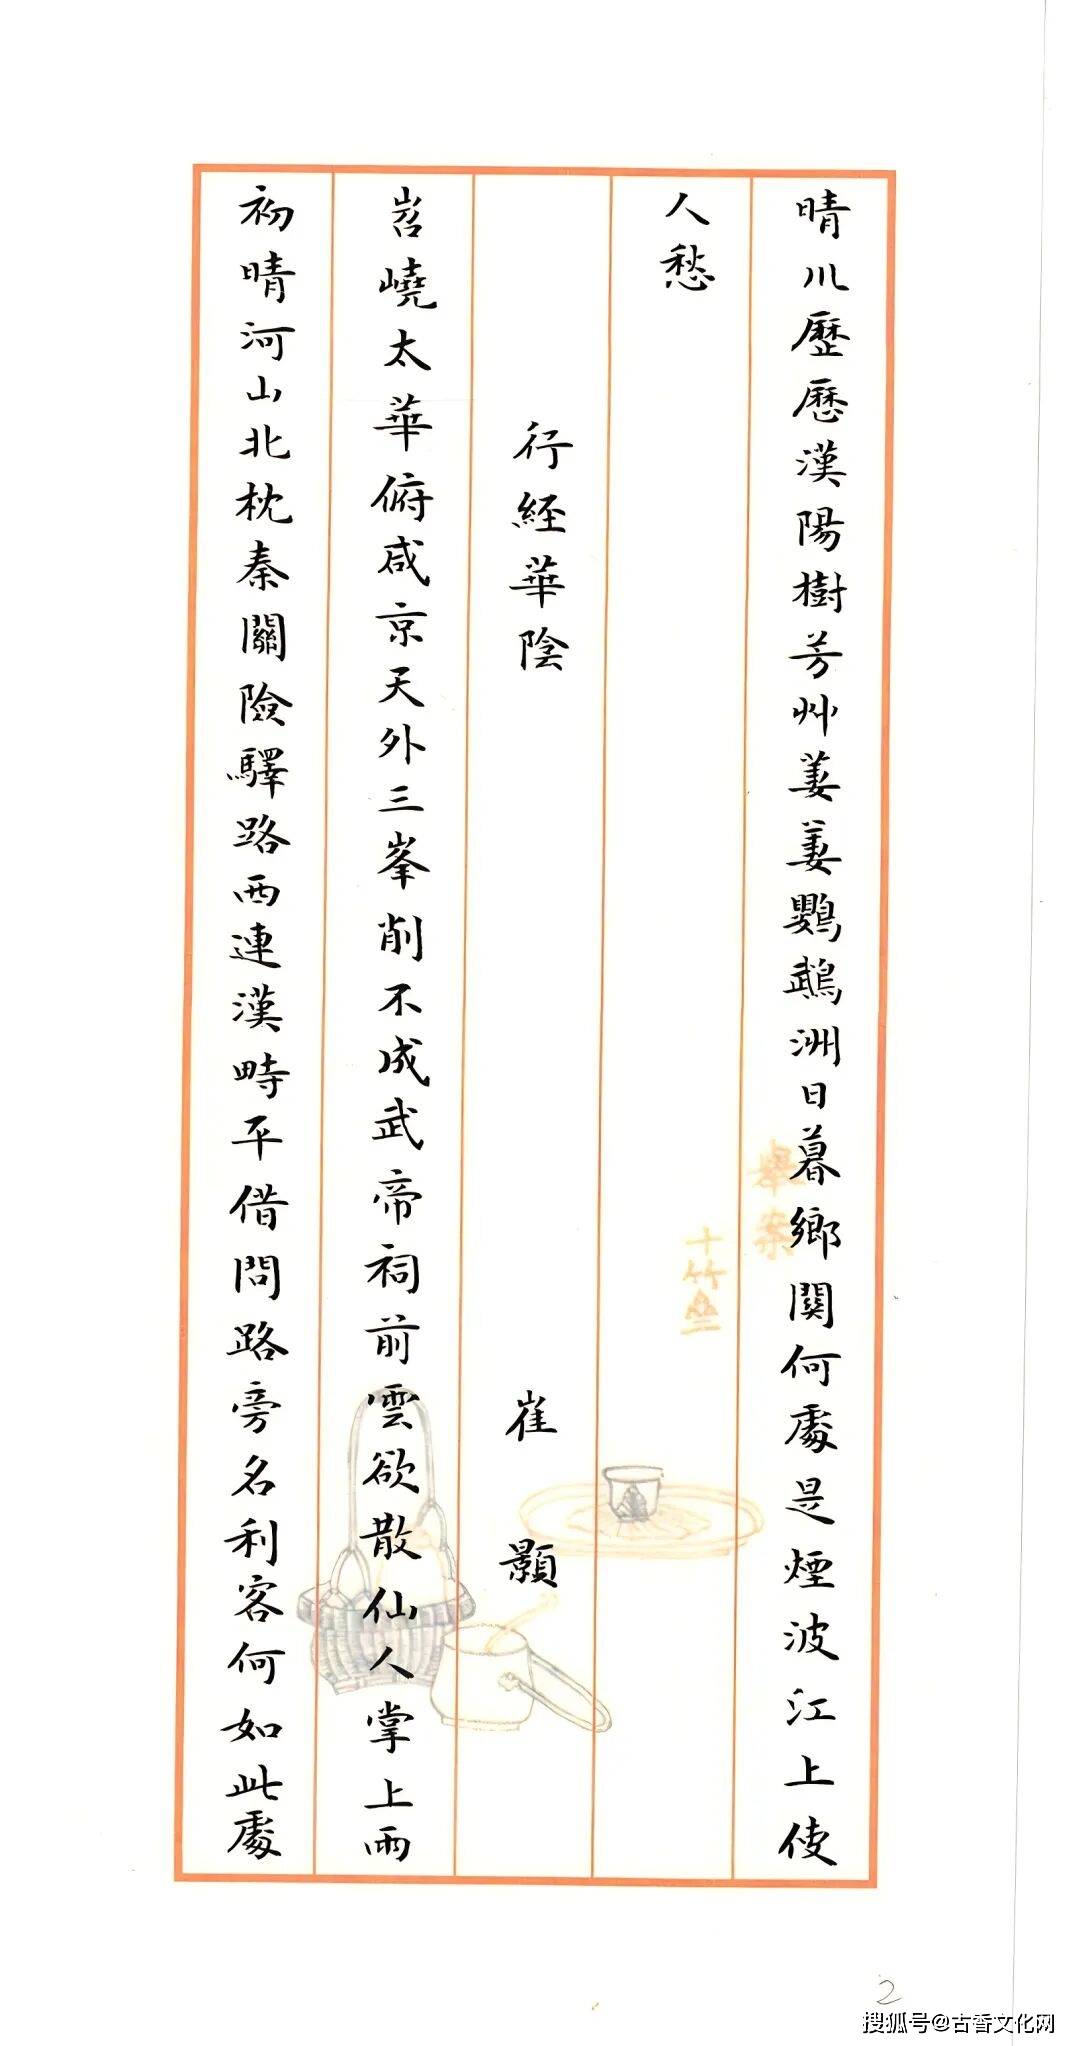 晴川歷歷漢陽樹芳艸萋萋鸚鵡洲日暮鄉關何處是煙波江上使
人愁
行經華陰 崔顥
岧嶢太華俯咸京天外三峯削不成武帝祠前雲欲散仙人掌上雨
初晴河山北枕秦關險驛路西連漢畤平借問路旁名利客何如此處
舉案
十竹齋
2
搜狐号@古香文化网